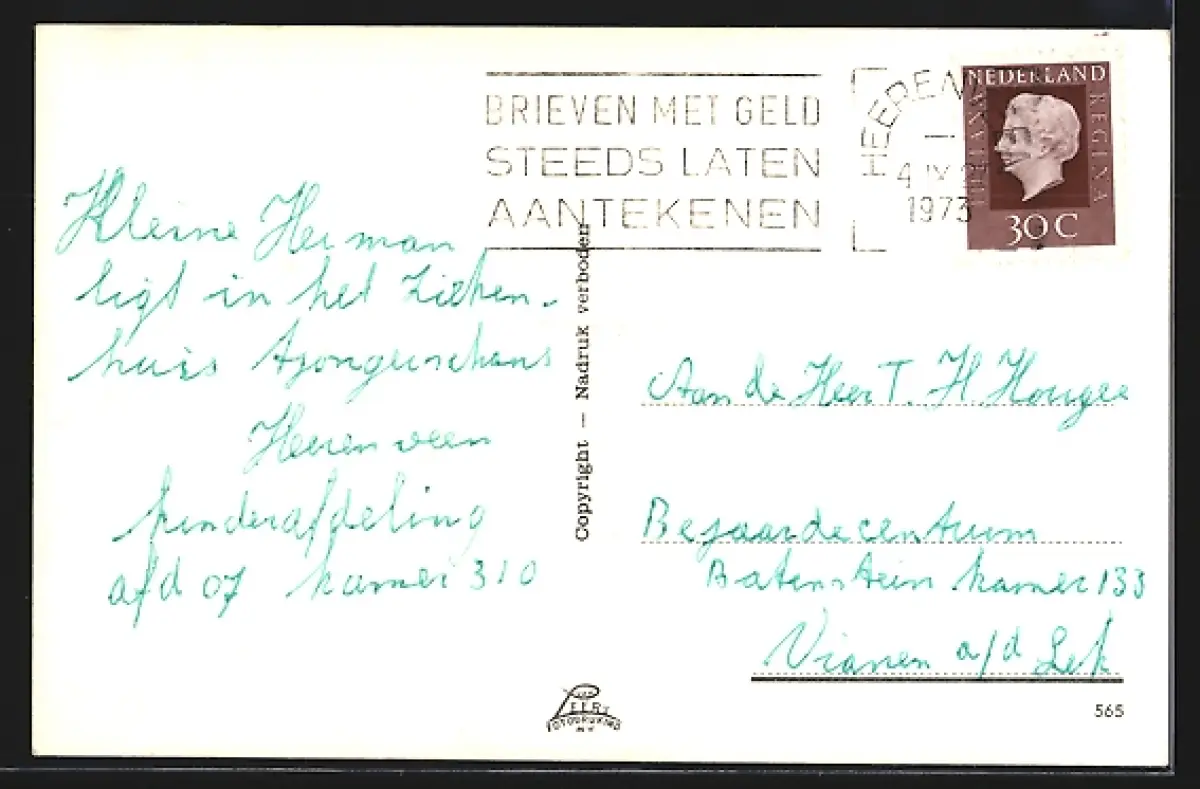 BRIEVEN MET GELD
STEEDS LATEN
AANTEKENEN
HEEREN
4 IX
1973
NEDERLAND
JULIANA
REGINA
30 C
Kleine Herman
ligt in het Zieken-
huis tjongerschans
Heerenveen
kinderafdeling
afd 07 kamer 310
Copyright — Nadruk verboden
Aan de Heer T. H
Bejaardecentrum
Batenstein kamer 133
Vianen a/d Lek
565